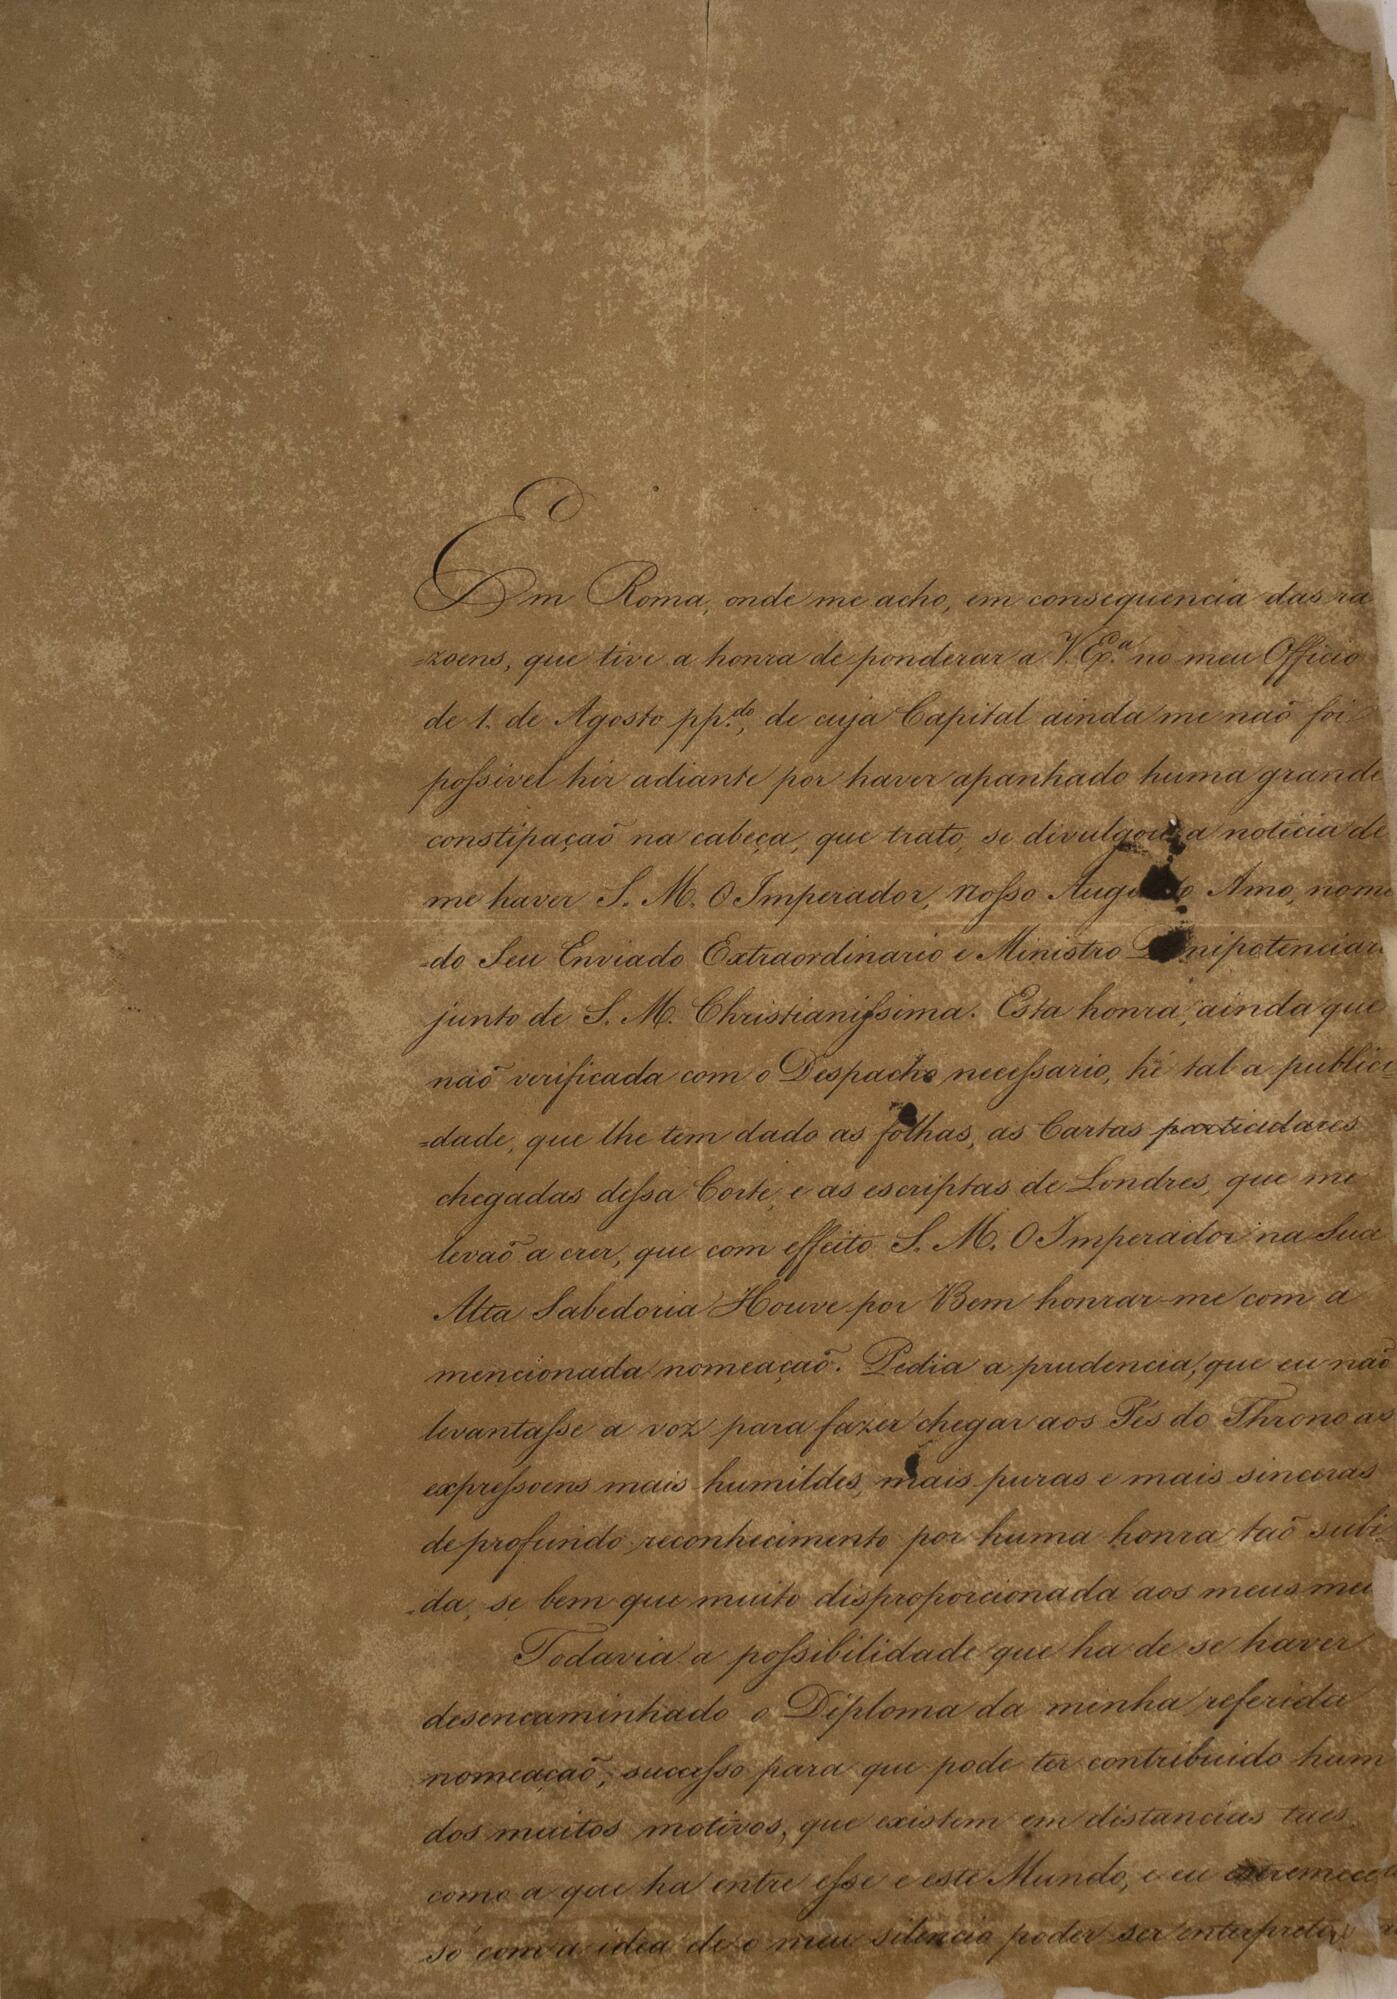 Em Roma, onde me acho, em consequencia das ra
=zoens, que tive a honra de ponderar a V. Ex.ª no meu Officio
de 1. de Agosto pp.do, de cuja Capital ainda me naõ foi
possivel hir adiante por haver apanhado huma grande
constipaçaõ na cabeça, que trato, se divulgou a noticia de
me haver S. M. O Imperador, Nosso Augusto Amo, nome
=do Seu Enviado Extraordinario e Ministro Plenipotenciar
junto de S. M. Christianissima. Esta honra, ainda que
naõ verificada com o Despacho necessario, hé tal a publici=
=dade, que lhe tem dado as folhas, as Cartas particulares
chegadas dessa Corte, e as escriptas de Londres, que me
levaõ a crer, que com effeito S. M. O Imperador na Sua
Alta Sabedoria Houve por Bem honrar-me com a
mencionada nomeaçaõ. Pedia a prudencia, que eu naõ
levantasse a voz para fazer chegar aos Pés do Throno as
expressoens mais humildes, mais puras e mais sinceras
de profundo reconhecimento por huma honra taõ subi=
=da, se bem que muito disproporcionada aos meus me
Todavia a possibilidade que ha de se haver
desencaminhado o Diploma da minha referida
nomeaçaõ, successo para que pode ter contribuido hum
dos muitos motivos, que existem em distancias taes,
como a que ha entre esse e este Mundo, e eu estremece
só com a idea de o meu silencio poder ser interpreta